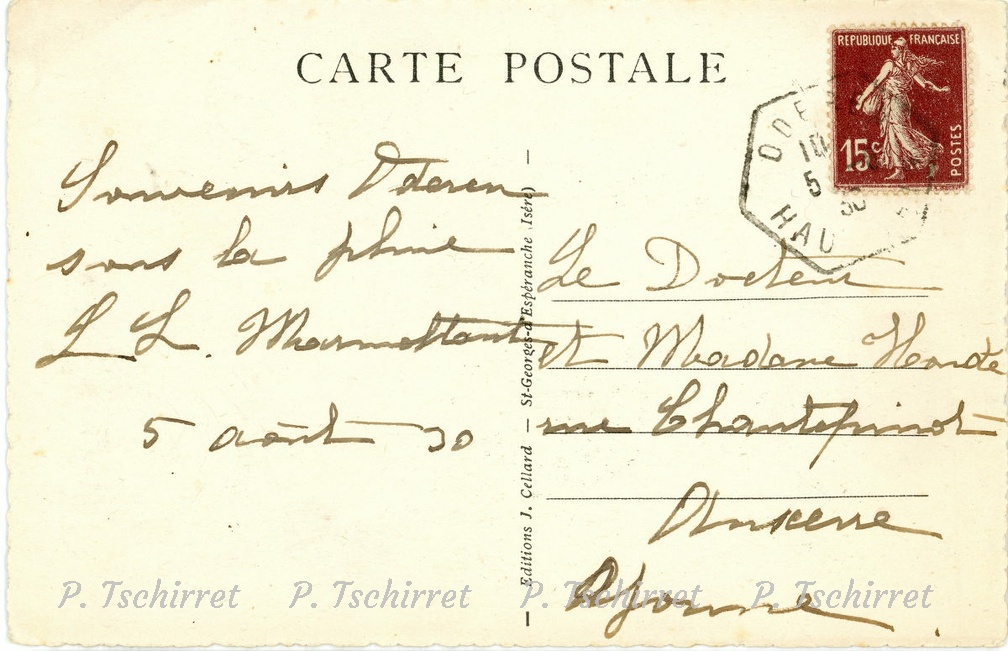 CARTE POSTALE
REPUBLIQUE FRANÇAISE
15c
POSTES
ODE
10
5
30
HAU
Souvenirs Oderen
sous la pluie
L L. Marmottant
5 août 30
Editions J. Cellard — St-Georges-d'Espéranche (Isère)
Le Docteur
et Madame
rue Chantepinot
Auxerre
Yonne
P. Tschirret P. Tschirret P. Tschirret P. Tschirret